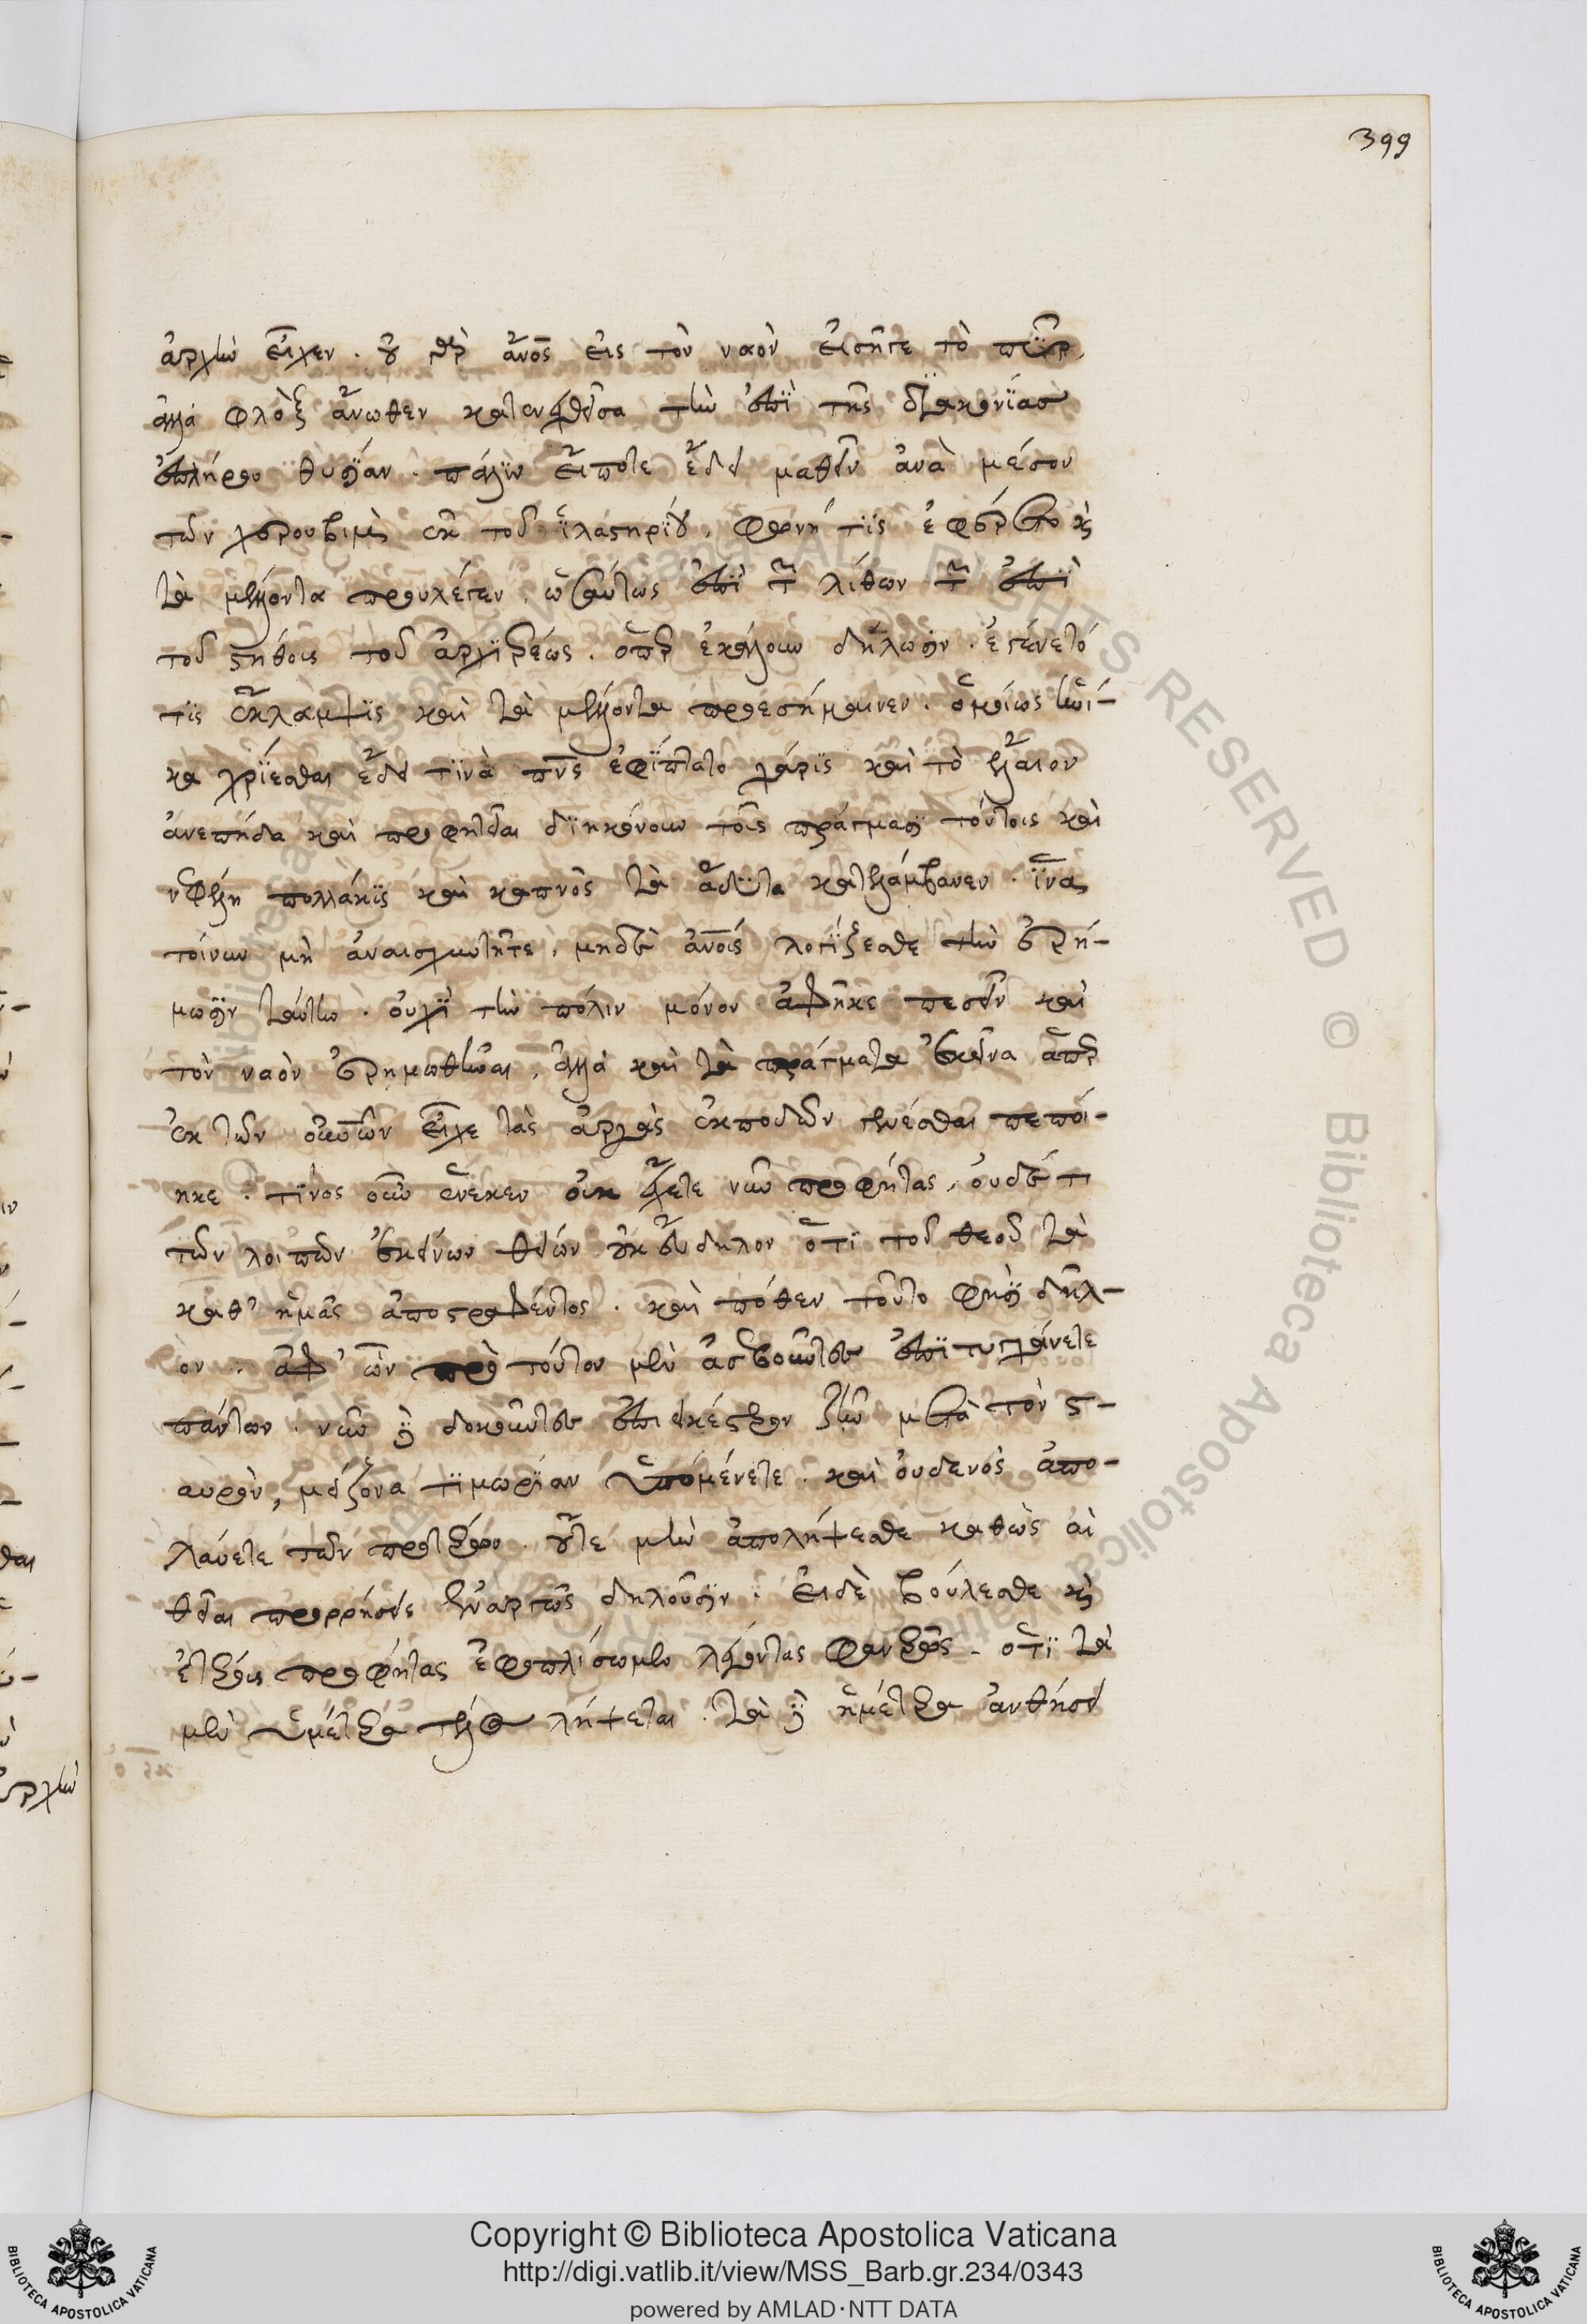 399
ἀρχὴν εἶχεν. οὐ γὰρ ἄνος εἰς τὸν ναὸν εἰσῆγε τὸ πῦρ,
ἀλλὰ φλὸξ ἄνωθεν κατενεχθεῖσα τὴν ἐπὶ τῆς διακονίας
ἐπλήρου θυσίαν. πάλιν εἴποτε ἔδει μαθεῖν ἀνὰ μέσον
τῶν χερουβιμὶ ἐκ τοῦ ἱλαστηρίου, φωνή τις ἐφέρετο καὶ
τὰ μέλλοντα προὔλεγεν. ὡσαύτως ἐπὶ τῶν λίθων τῶν ἐπὶ
τοῦ στήθους τοῦ ἀρχιερέως. ὅπερ ἐκάλουν δήλωσιν. ἐγένετό
τις ἔκλαμψις καὶ τὰ μέλλοντα προεσήμαινεν. ὁμοίως ἡνί-
κα χρίεσθαι ἔδει τινὰ πνς ἐφίπτατο χάρις καὶ τὸ ἔλαιον
ἀνεπήδα καὶ προφῆται διηκόνουν τοῖς πράγμασι τούτοις καὶ
νεφέλη πολλάκις καὶ καπνὸς τὰ ἄδυτα κατελάμβανεν. ἵνα
τοίνυν μὴ ἀναισχυντῆτε, μηδὲ ἀνοις λογίζεσθε τὴν ἐρή-
μωσιν ταύτην. οὐχὶ τὴν πόλιν μόνον ἀφῆκε πεσεῖν καὶ
τὸν ναὸν ἐρημωθῆναι, ἀλλὰ καὶ τὰ πράγματα ἐκεῖνα ἅπερ
ἐκ τῶν οὐνῶν εἶχε τὰς ἀρχὰς ἐκποδὼν γενέσθαι πεποί-
ηκε. τίνος οὖν ἕνεκεν οὐκ ἔχετε νῦν προφήτας, οὐδέ τι
τῶν λοιπῶν ἐκείνων θείων οὐκ εὔδηλον ὅτι τοῦ θεοῦ τὰ
καθ' ἡμᾶς ἀποστραφέντος. καὶ πόθεν τοῦτο φησὶ δῆλ-
ον. ἀφ' ὧν πρὸ τούτου μὲν ἀσεβοῦντες ἐπιτυγχάνετε
πάντων. νῦν δὲ δοκοῦντες ἐπιεικέστερον ζῆν μετὰ τὸν σ-
αυρὸν, μείζονα τιμωρίαν ὑπομένετε. καὶ οὐδενὸς ἀπο-
λαύετε τῶν προτέρων. οὔτε μὴν ἀπολήψεσθε καθὼς αἱ
θεῖαι προρρήσεις ἐναργῶς δηλοῦσιν. εἰ δὲ βούλεσθε καὶ
ἑτέρους προφήτας ἐφοπλίσωμεν λέγοντας φανερῶς. ὅτι τὰ
μὲν ὑμέτερα τέλος λήψεται. τὰ δὲ ἡμέτερα ἀνθήσει
Copyright © Biblioteca Apostolica Vaticana
http://digi.vatlib.it/view/MSS_Barb.gr.234/0343
powered by AMLAD·NTT DATA